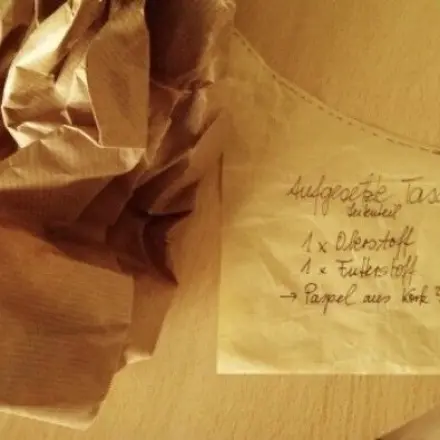 Aufgesetzte Tas
Seitenteil
1 x Oberstoff
1 x Futterstoff
→ Paspel aus Kork